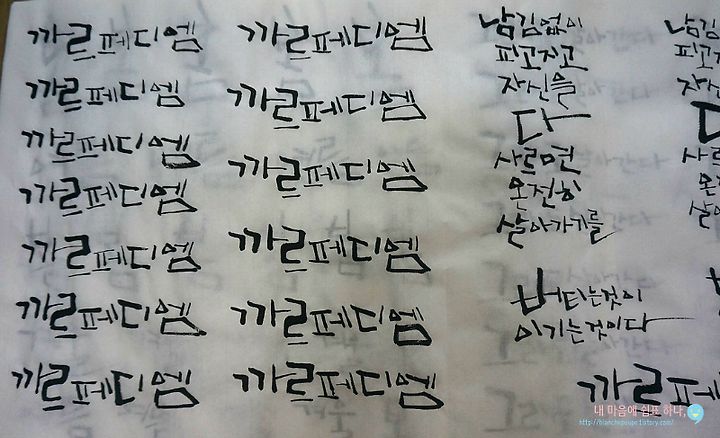 까르페디엠
까르페디엠
까르페디엠
까르페디엠
까르페디엠
까르페디엠
까르페디엠
까르페디엠
까르페디엠
까르페디엠
까르페디엠
까르페디엠
까르페디엠
남김없이
피고지고
자신을
다
사르며
온전히
살아가기를
버티는것이
이기는것이다
까르페
남김
피고지
자신
다
사르
온
살아
내 마음에 쉼표 하나,
http://blanchepoupe.tistory.com/